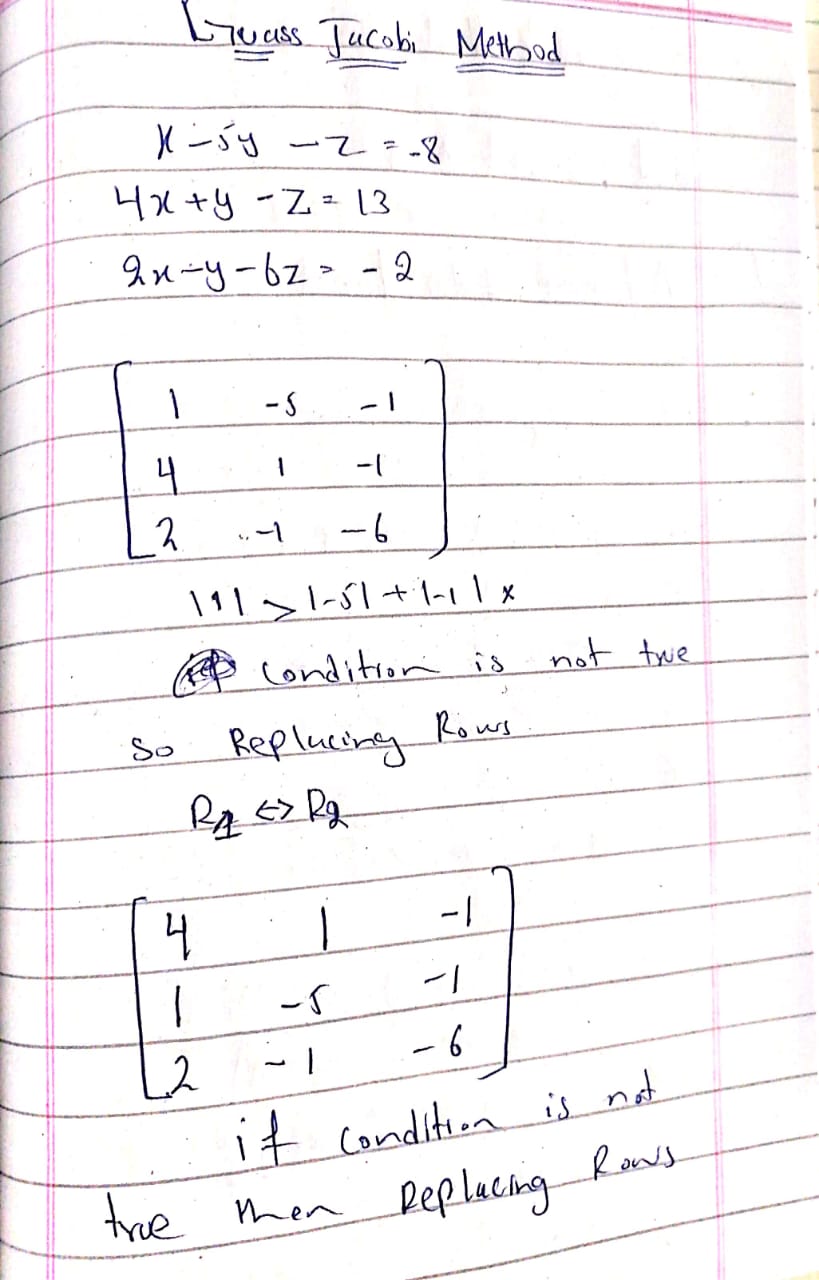 Guass Jacobi Method
x - 5y - z = -8
4x + y - z = 13
2x - y - 6z = -2
1 -5 -1
4 1 -1
2 -1 -6
|1| > |-5| + |-1| x
condition is not true
so Replacing Rows
R1 <-> R2
4 1 -1
1 -5 -1
2 -1 -6
if condition is not
true then Replacing Rows